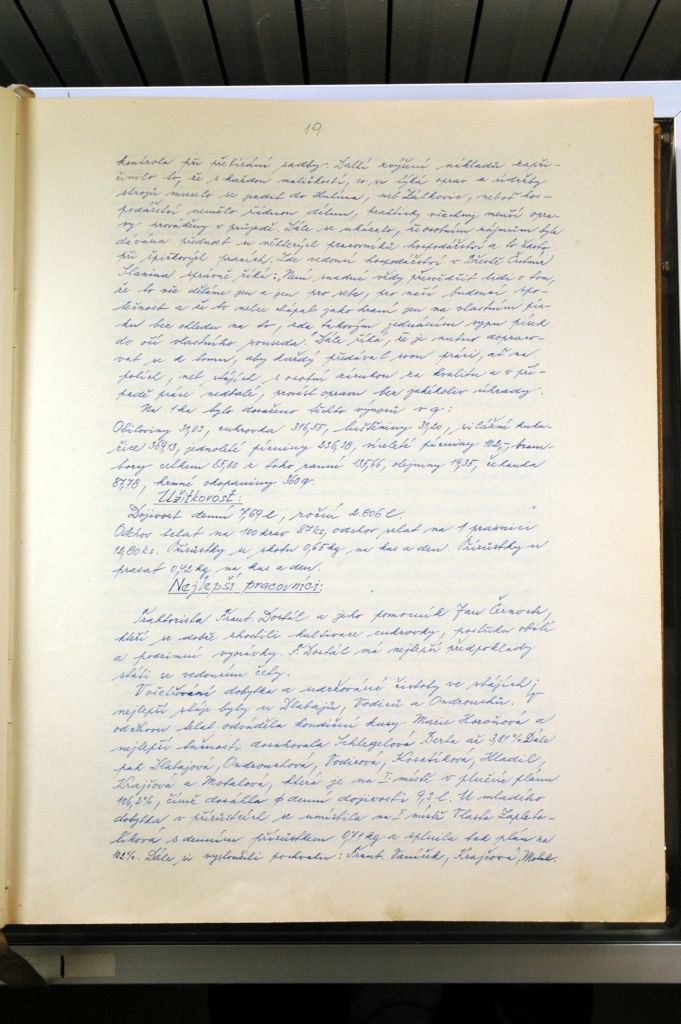 19
kontrola při přebírání sadby. Další zvýšení nákladů zapří-
činilo to, že s každou maličkostí, co se týká oprav a údržby
strojů muselo se jezdit do Hulína, neb Zálkovic, neboť hos-
podářství nemělo řádnou dílnu, prakticky všechny menší opra-
vy prováděny v průjezdě. Dále se ukázalo, že osobním zájmům byla
dávána přednost u některých pracovníků hospodářství a to často
při špičkových pracích. Zde vedoucí hospodářství v Břestě Čestmír
Slanina správně říká: "Není snadné vždy přesvědčit lidi o tom,
že to vše děláme jen a jen pro sebe, pro naší budoucí spo-
lečnost a že to nelze chápat jako hraní jen na vlastním pís-
ku bez ohledu na to, zda takovým jednáním sypu písek
do očí vlastního souseda." Dále říká, že je nutno dopraco-
vat se k tomu, aby každý předával svou práci, ať na
polích, neb stájích s osobní zárukou za kvalitu a v pří-
padě práce nedbalé, provést opravu bez jakékoliv úhrady.
Na 1 ha bylo dosaženo těchto výnosů v q:
Obiloviny 31,03, cukrovka 316,55, luštěniny 31,20, silážní kuku-
řice 369,13, jednoleté pícniny 236,38, víceleté pícniny 102,-, bram-
bory celkem 85,80 z toho ranné 135,66, olejniny 19,35, čekanka
87,78, krmné okopaniny 360 q.
Užitkovost:
Dojivost denní 7,69 l, roční 2.806 l
Odchov telat na 100 krav 87 ks, odchov selat na 1 prasnici
12,80 ks. Přírůstky u skotu 0,65 kg na kus a den. Přírůstky u
prasat 0,42 kg na kus a den.
Nejlepší pracovníci:
Traktorista Frant. Dostál a jeho pomocník Jan Černoch,
kteří se dobře zhostili kultivace cukrovky, posklizu obilí
a podzimní vyorávky. F. Dostál má nejlepší předpoklady
státi se vedoucím čety.
V ošetřování dobytka a udržování čistoty ve stájích
nejlepší stáje byly u Hlabajů, Vodiců a Ondrouchů. V
odchovu telat odváděla kondiční kusy Marie Haroňová a
nejlepší tučnosti dosahovala Schlegelová Berta až 3,81 %. Dále
pak Hlabajová, Ondrouchová, Vodicová, Kosatíková, Hladil,
Krajčová a Motalová, která je na I. místě v plnění plánu
106,2 %, čímž dosáhla ϕ denní dojivosti 9,3 l. U mladého
dobytka v přírůstcích se umístila na I. místě Vlasta Zapleta-
líková s denním přírůstkem 0,71 kg a splnila tak plán na
102 %. Dále si vysloužili pochvalu: Frant. Vaníček, Krajčová, Motal.